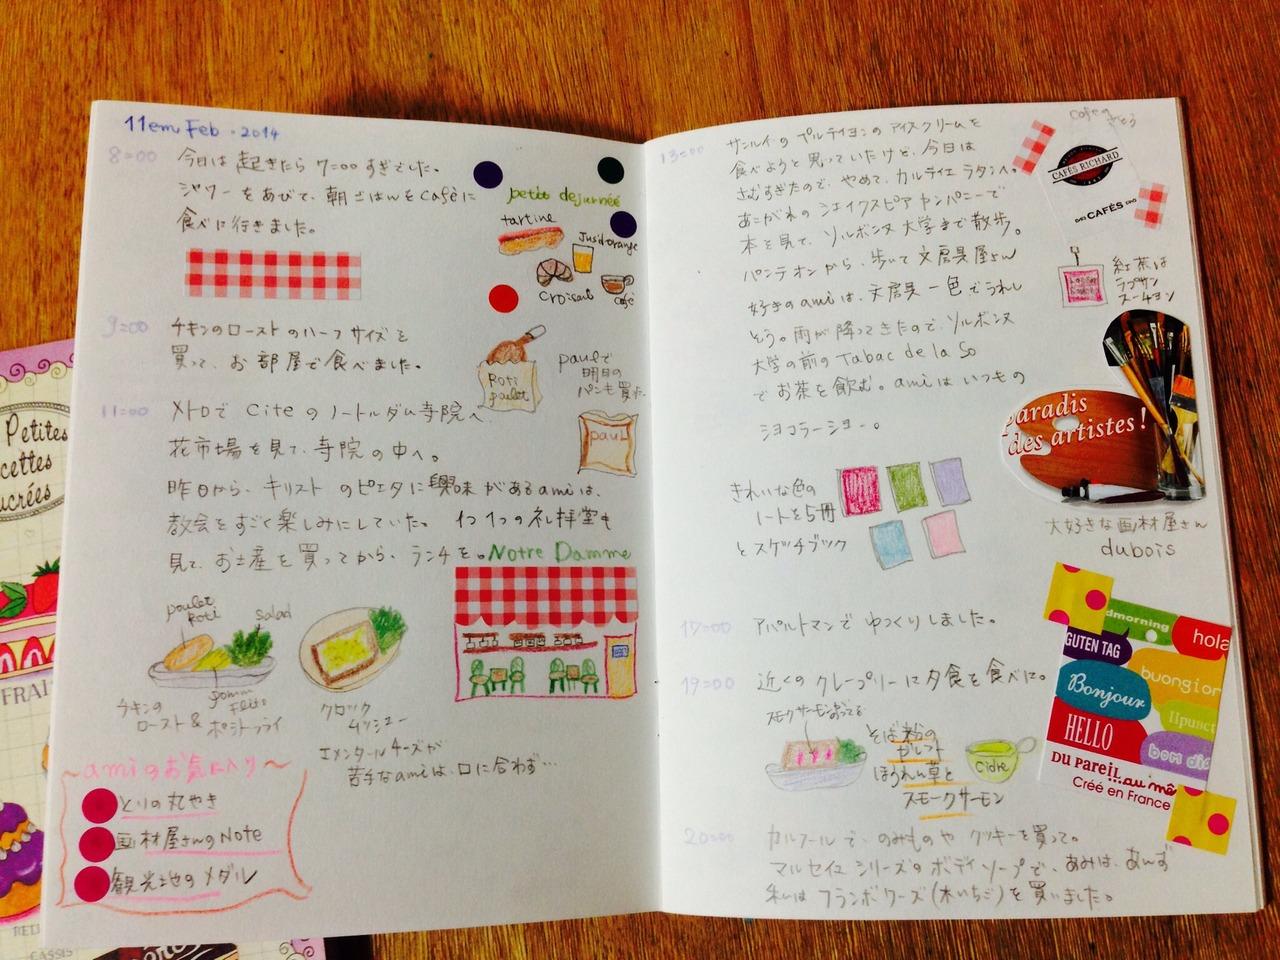 11em Feb. 2014
8:00 今日は起きたら7:00すぎでした。
シャワーをあびて、朝ごはんをCaféに
食べに行きました。
petit dejeunée
tartine
Jus d'orange
croisant
Café
9:00 チキンのローストのハーフサイズを
買って、お部屋で食べました。
Roti
poulet
paulで
明日の
パンも買った
paul
11:00 メトロで Citeのノートルダム寺院へ
花市場を見て、寺院の中へ。
昨日から、キリストのピエタに興味があるamiは、
教会をすごく楽しみにしていた。1つ1つの礼拝堂も
見て、お土産を買ってから、ランチを。
Notre Damme
poulet
Roti
salad
pomm
チキンの
ロースト&ポテトフライ
クロック
ムッシュー
エメンタールチーズが
苦手なamiは、口に合わず…
〜amiのお気に入り〜
とりの丸やき
画材屋さんのNote
観光地のメダル
13:00 サンルイのベルティヨンのアイスクリームを
食べようと思っていたけど、今日は
さむすぎたので、やめて、カルティエラタンへ。
あこがれのシェイクスピアカンパニーで
本を見て、ソルボンヌ大学まで散歩。
パンテオンから、歩いて文房具屋さん
好きのamiは、文房具一色でうれし
そう。雨が降ってきたので、ソルボンヌ
大学の前のTabac de la So
でお茶を飲む。amiはいつもの
ショコラーショー。
CAFÉS RICHARD
CAFÉS
紅茶は
ラプサン
スーチョン
paradis
des artistes!
大好きな画材屋さん
dubois
きれいな色の
ノートを5冊
とスケッチブック
17:00 アパルトマンでゆっくりしました。
19:00 近くのクレープリーに夕食を食べに。
そば粉の
ガレット
ほうれん草と
スモークサーモン
cidre
20:00 カルフールで、のみものやクッキーを買って。
マルセイユシリーズのボディソープで、あみは、あんず
私はフランボワーズ(木いちご)を買いました。
dmorning
hola
GUTEN TAG
buongior
Bonjour
HELLO
bom dia
DU PAREIL...au mê
Créé en France
Petites
cettes
ucrées
FRAI
CASSIS